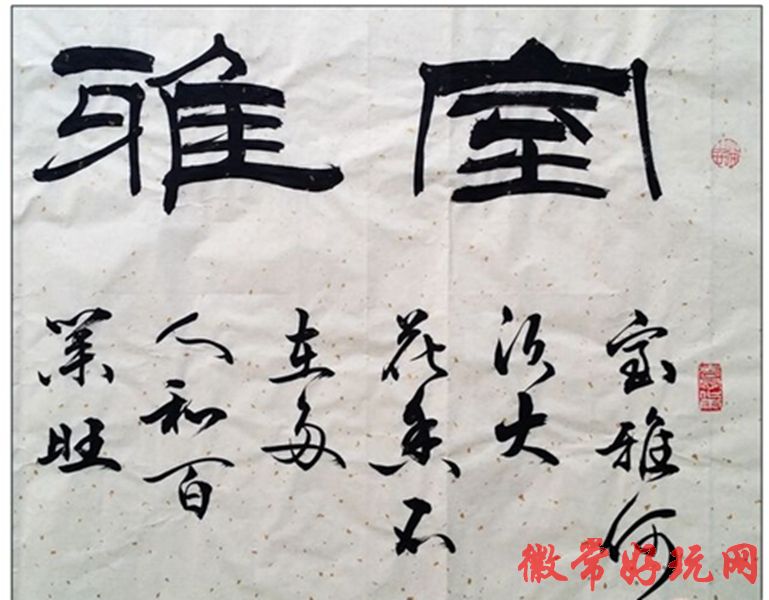 室雅
室雅何
须大
花香不
在多
人和百
業旺
徽常好玩网